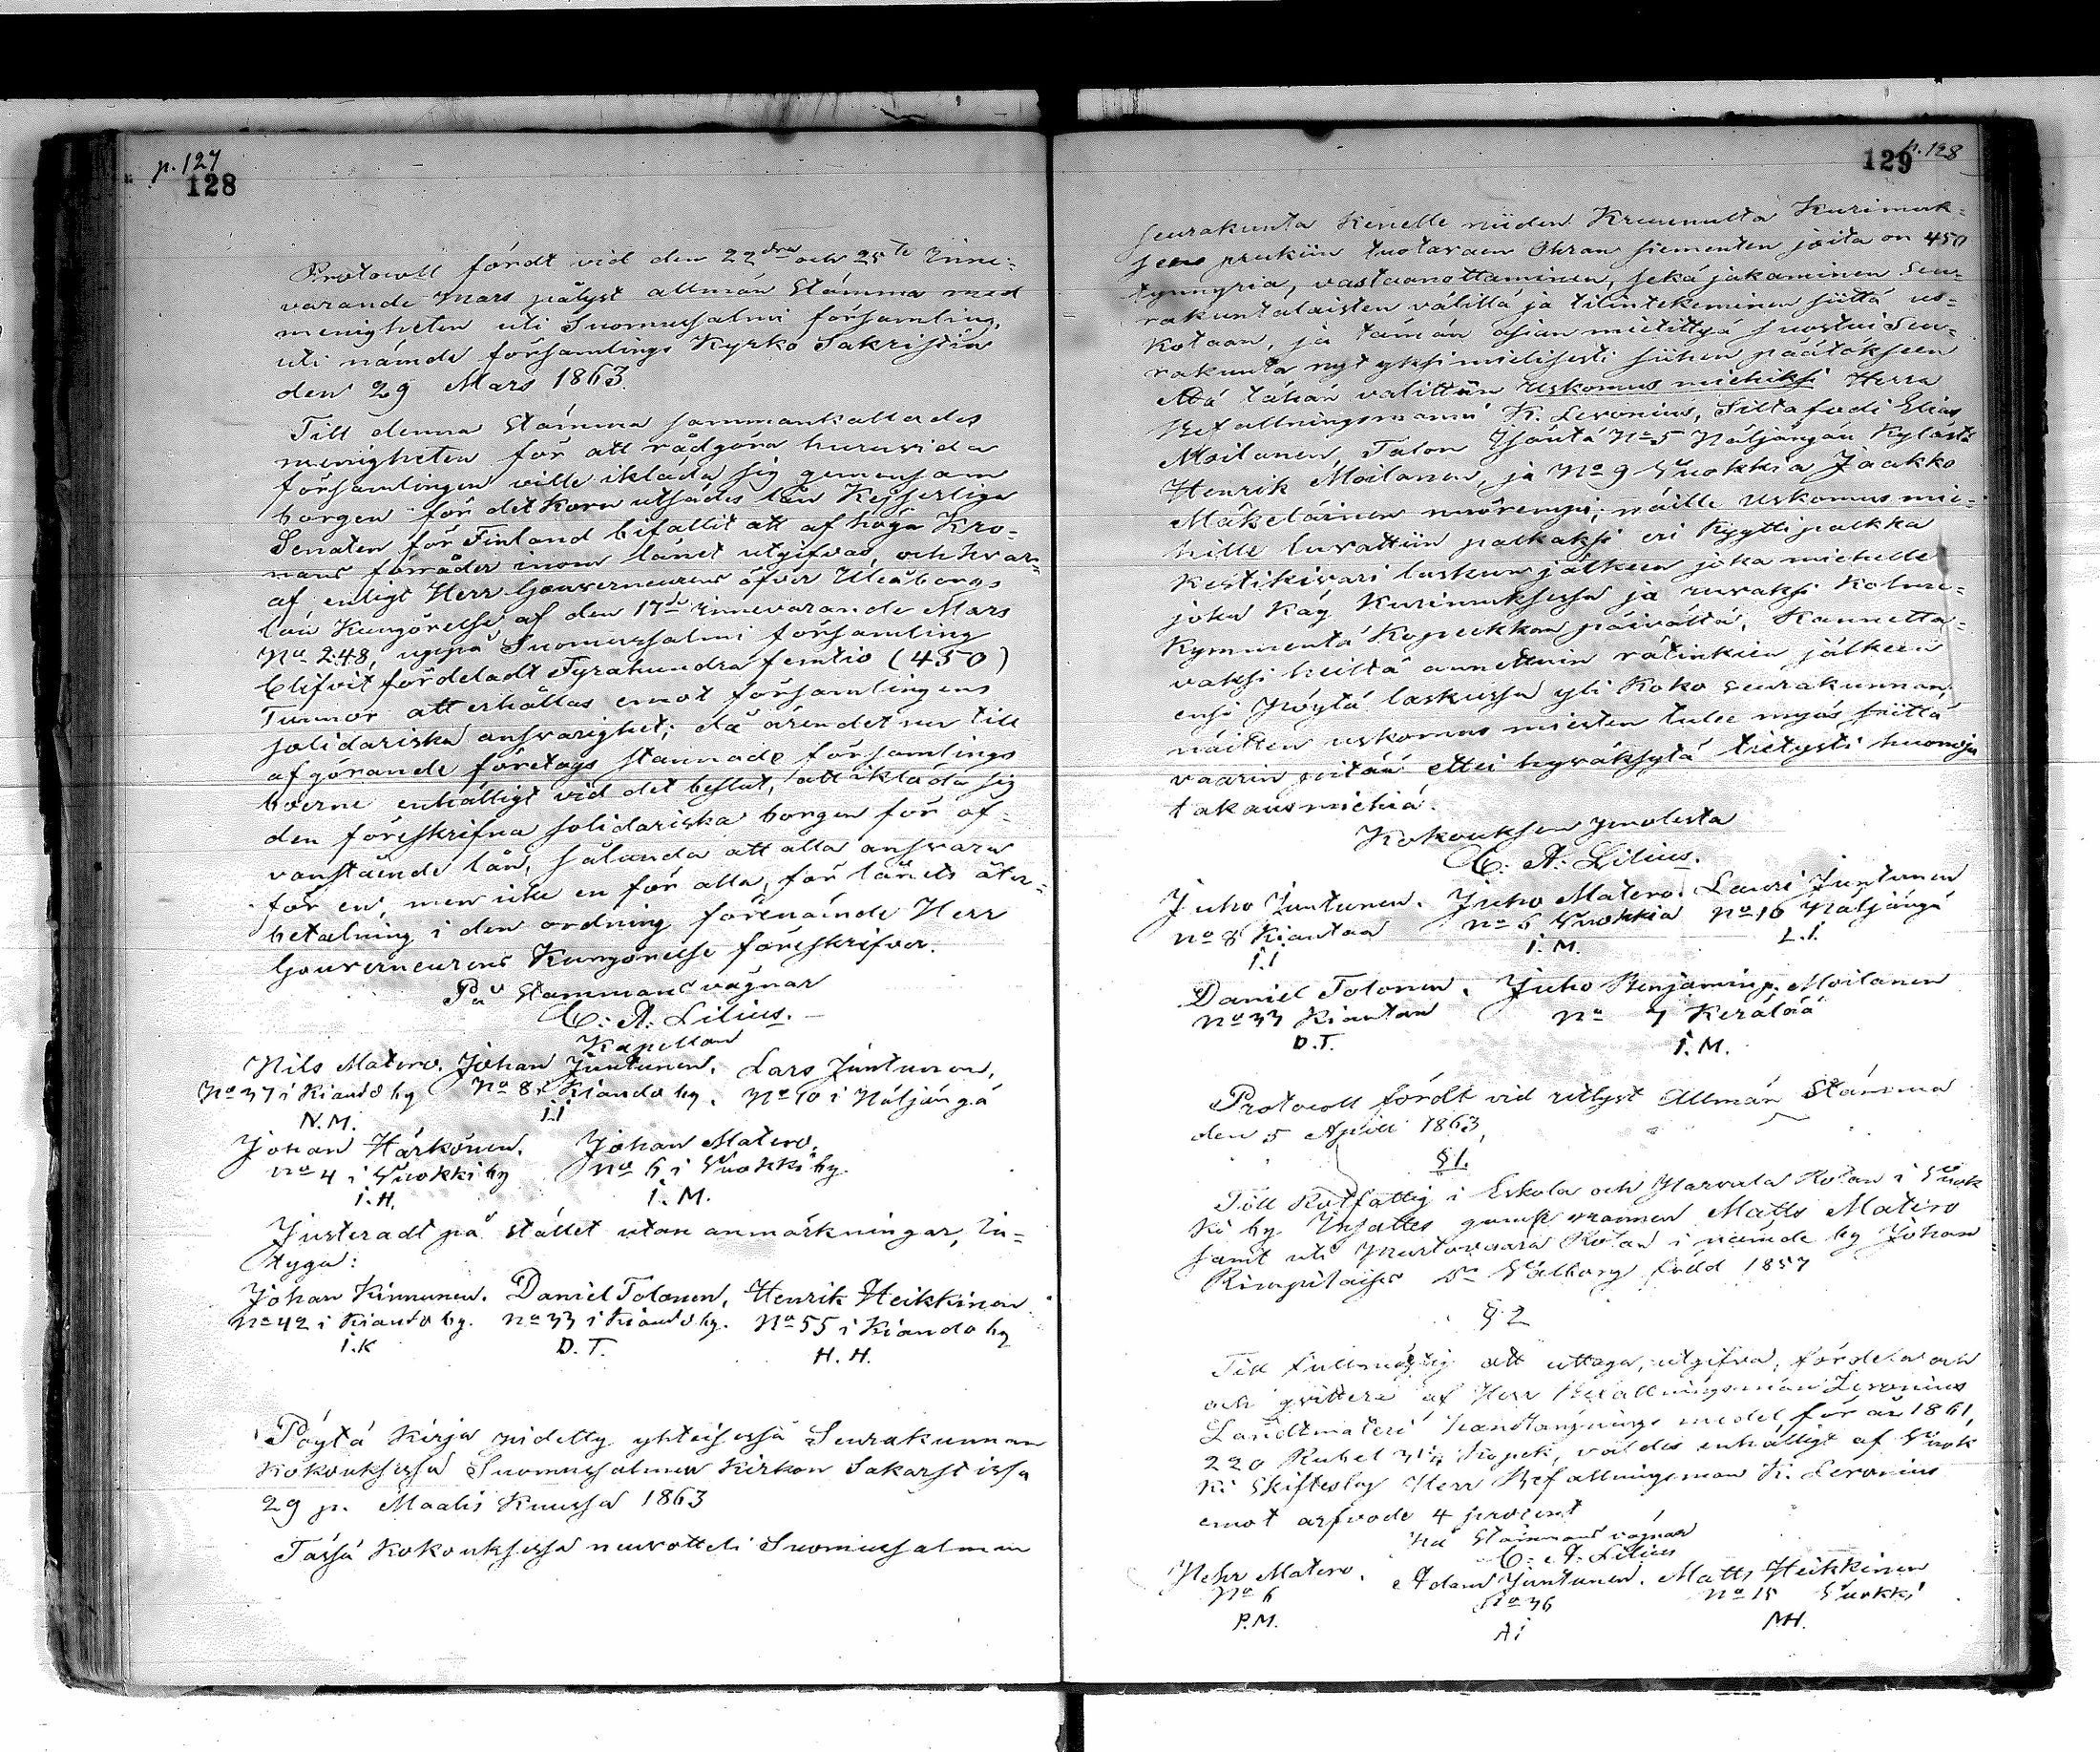 p. 127
128
Protocoll fördt vid den 22dra och 25te Inne-
varande Mars pålyst allmän Stämma med
menigheten uti Suomussalmi församling,
uti nämde församlings Kyrko Sakristia
den 29 Mars 1863.
Till denna Stämma sammankallades
menigheten för att rådgöra huruvida
församlingen ville ikläda sig gemensam
borgen för det Korn utsädes lån Kejserliga
Senaten för Finland bifallit att af höga Kro-
nans förråder inom länet utgifvas, och hvar-
af, enligt Herr Gouverneurens öfver Uleåborgs
län Kungörelse af den 17de innevarande Mars
No 248, uppå Suomussalmi församling
blifvit fördeladt Fyrahundra femtio (450)
Tunnor att erhållas emot församlingens
solidariska ansvarighet; då ärendet nu till
afgörande företogs stannade församlings
boerne enhälligt vid det beslut, att ikläda sig
den föreskrifna solidariska borgen för of-
vanstående lån, sålunda att alla ansvara
för en, men icke en för alla, för lånets åter-
betalning i den ordning förenämde Herr
Gouverneurens Kungörelse föreskrifver.
På Stämmans vägnar
C: A: Lilius.
Kapellan
Nils Matero. Johan Juntunen. Lars Juntunen,
No 37 i Kiando by No 8 i Kiando by. No 10 i Näljängä
N.M. I.I
Johan Härkönen. Johan Matero.
No 4 i Vuokki by No 6 i Vuokki by.
I.H. I.M.
Justeradt på stället utan anmärkningar, in-
tyga:
Johan Kinnunen. Daniel Tolonen, Henrik Heikkinen
No 42 i Kiando by. No 33 i Kiando by. No 55 i Kiando by
I.K D.T. H.H.
Pöytä Kirja pidetty yhteisessä Seurakunnan
Kokouksessa Suomussalmen Kirkon Sakarstissa
29 p. Maalis Kuussa 1863
Tässä Kokouksessa neuvotteli Suomussalmen
p. 128
129
seurakunta Kenelle niiden Kruunulta Kurimuk-
sen prukiin tuotavaen Ohran siementen joita on 450
tynnyriä, vastaanottaminen, sekä jakaminen Seu-
rakuntalaisten välillä ja tilintekeminen siittä us-
kotaan, ja tämän asian mietittyä suostui Seu-
rakunta nyt yksimielisesti siihen päätökseen
että tähän valittiin Uskomus miehiksi Herra
Befallningsmanni K. Leronius, Siltafodi Elias
Moilanen, Talon Isäntä No 5 Näljängän Kylästä
Henrik Moilanen, ja No 9 Vuokkia Jaakko
Mäkeläinen nuorempi; näille Uskomus mie-
hille luvattiin palkaksi eri Kyyttipalkka
Kestikivari laskun jälkeen joka miehelle
joka Käy Kurimuksessa ja ruvaksi Kolme-
Kymmentä Kopeekkaa päivältä, Kannetta-
vaksi heiltä annettuin rätinkien jälkeen
ensi Pöytä laskussa yli Koko seurakunnan
näitten uskomus miesten tulee myös siittä
vaarin pitää ettei hyväksytä tietysti huonoja
takausmiehiä.
Kokouksen puolesta
C: A: Lilius.
Juho Juntunen. Juho Matero. Lauri Juntunen
No 8 Kiantaa No 6 Vuokkia No 10 Näljängä
I.I I.M. L.I.
Daniel Tolonen. Juho Benjamin p. Moilanen
No 33 Kiantaa No 7 Kerälää
D.T. I.M.
Protocoll fördt vid utlyst Allmän Stämma
den 5 April 1863,
§ 1.
Till Rotfattig i Eskola och Harvala Rotan i Vuok
ki by Insattes gamle mannen Matts Matero
samt uti Murtovaara Rotan i nämde by Johan
Rimpiläises Dr Valborg född 1857
§ 2
Till fullmägtig att uttaga, utgifva, fördela och
och qvittera af Herr Befallningsman Leronius
Landtmäteri handtangnings medel för år 1861,
220 Rubel 31¼ Kopek, valdes enhälligt af Vuok
ki Skifteslag Herr Befallningsman K. Leronius
emot arfvode 4 procent
På Stämmans vägnar
C: A: Lilius
Pehr Matero. Adam Juntunen. Matts Heikkinen
No 6 No 36 No 15 Vuokki
P.M. AI MH.